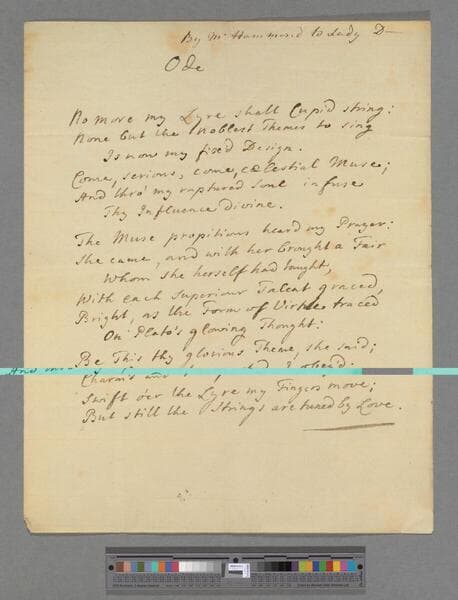 By Mr Hammond to Lady D—
Ode
No more my Lyre shall Cupid string:
None but the Noblest Themes to sing
Is now my fix'd Design.
Come, serious, come, cælestial Muse;
And thro' my raptured Soul infuse
Thy Influence divine.
The Muse propitious heard my Prayer:
She came, and with her brought a Fair
Whom she herself had taught,
With each Superiour Talent graced,
Bright, as the Form of Virtue traced
On Plato's glowing Thought:
Be This thy glorious Theme, she said;
Charm'd obey'd.
Swift o'er the Lyre my Fingers move;
But still the Strings are tuned by Love.